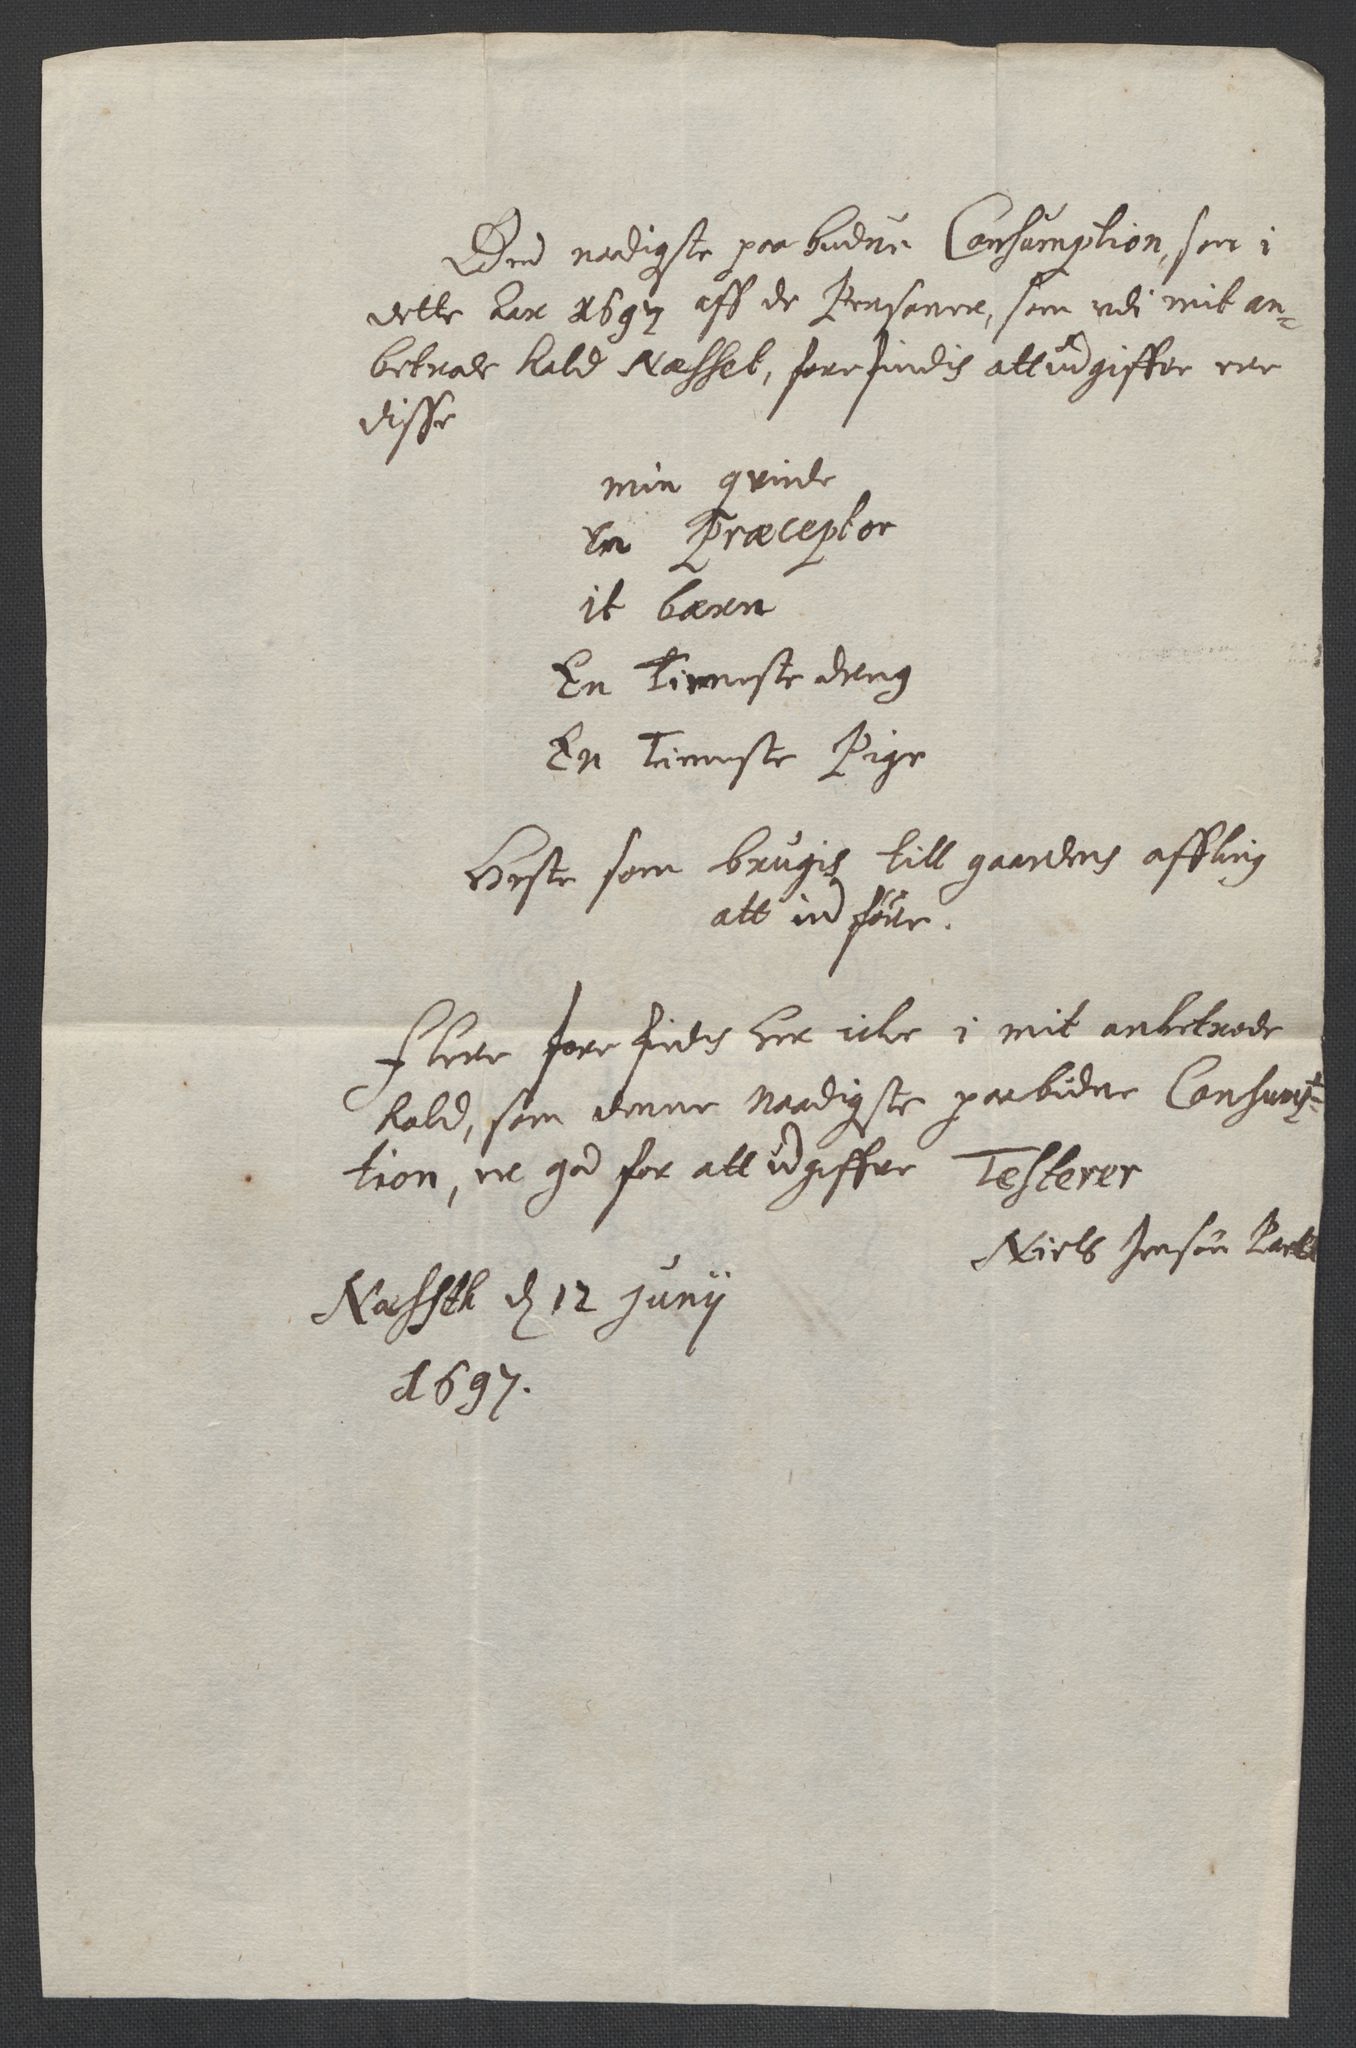 Den naadigste paabudne Consumption, som i
dette Aar 1697 aff de Personer, som udi mit an-
betrode kald Næsset, forefindis att udgiffve ere
disse
min qvinde
en Præceptor
it barn
En Tieneste dreng
En Tieneste Pige
Heste som brugis till gaardens affling
att indföre.
Flere forefindis her icke i mit anbetrode
kald, som denne naadigste paabudne Consump-
tion, er god for att udgiffve Testerer
Niels Jensön
Næssett d 12 Junij
1697.